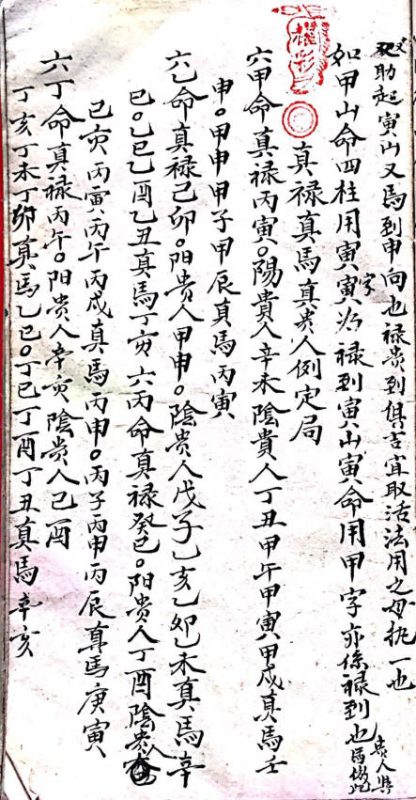 助起寅山又馬到申向也祿貴到俱吉宜取活法用之毋执一也
如甲山命四柱用寅寅字為祿到寅山寅命用甲字亦係祿到也貴人與馬倣此
真祿真馬真貴人例定局
六甲命真祿丙寅。陽貴人辛未陰貴人丁丑甲午甲寅甲戌真馬壬
申。甲申甲子甲辰真馬丙寅
六乙命真禄己卯。阳貴人甲申。陰貴人戊子乙亥乙卯乙未真馬辛
巳。乙巳乙酉乙丑真馬丁亥 六丙命真禄癸巳。阳貴人丁酉陰貴人
己亥丙寅丙午丙戌真馬丙申。丙子丙申丙辰真馬庚寅
六丁命真禄丙午。阳貴人辛亥陰貴人己酉
丁亥丁未丁卯真馬乙巳。丁巳丁酉丁丑真馬辛亥